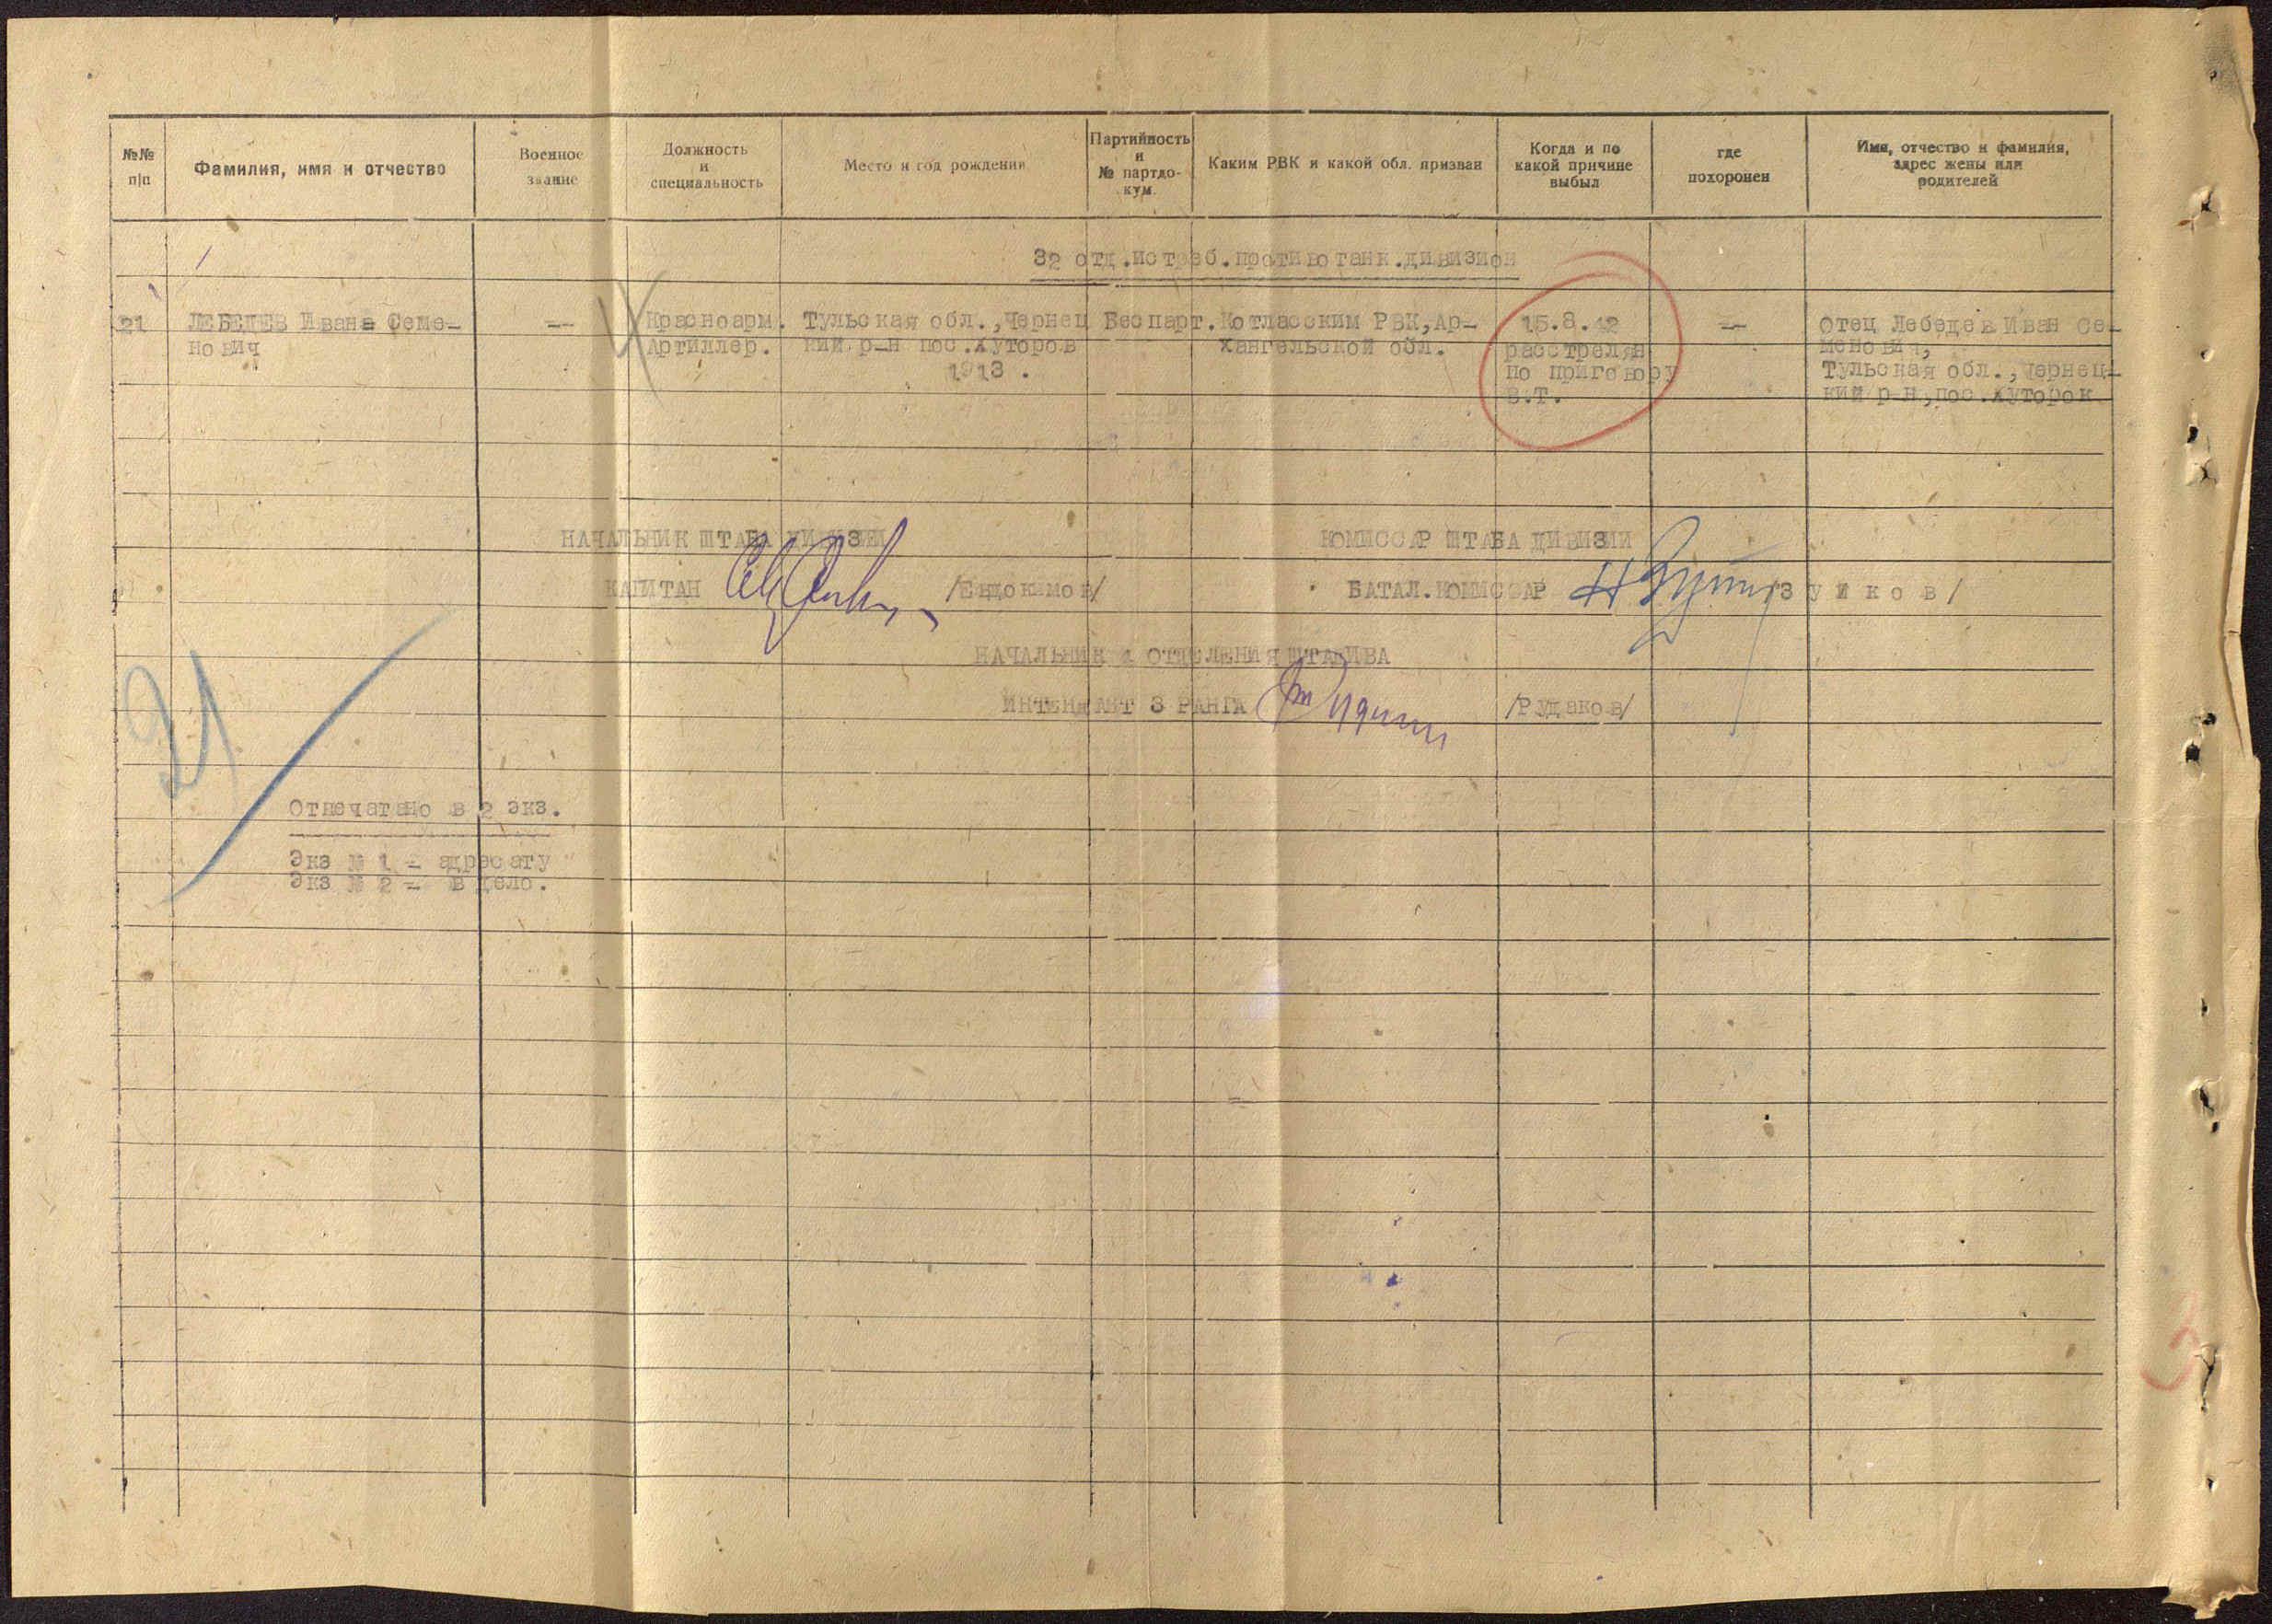 №№ п|п
Фамилия, имя и отчество
Военное звание
Должность и специальность
Место и год рождения
Партийность и № партдо-кум.
Каким РВК и какой обл. призван
Когда и по какой причине выбыл
где похоронен
Имя, отчество и фамилия, адрес жены или родителей
32 отд.истреб.противотанк.дивизион
21
ЛЕБЕДЕВ Ивана Семе-
нович
—
Красноарм.
Артиллер.
Тульская обл.,Чернец
кий р-н пос.Хуторов
1913.
Беспарт.
Котласским РВК,Ар-
хангельской обл.
15.8.42
расстрелян
по приговору
В.Т.
—
Отец Лебедев Иван Се-
менович,
Тульская обл.,Чернец-
кий р-н,пос.Хуторок
НАЧАЛЬНИК ШТАБА ДИВИЗИИ
КОМИССАР ШТАБА ДИВИЗИИ
КАПИТАН /Евдокимов/
БАТАЛ.КОМИССАР /З у й к о в/
НАЧАЛЬНИК 4 ОТДЕЛЕНИЯ ШТАДИВА
ИНТЕНДАНТ 3 РАНГА /Рудаков/
21
Отпечатано в 2 экз.
Экз № 1 - адресату
Экз № 2 - в дело.
3